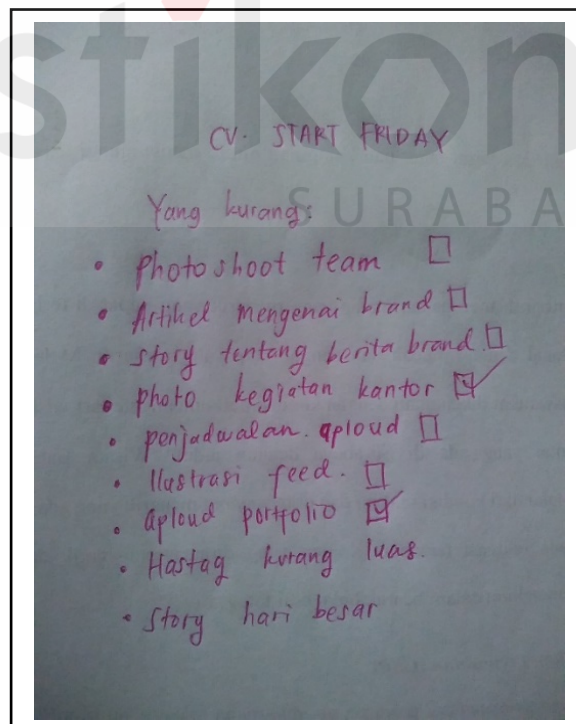 stikom
SURABA
CV. START FRIDAY
Yang kurang:
• Photoshoot team ☐
• Artikel mengenai brand ☐
• Story tentang berita brand. ☐
• photo kegiatan kantor ☑
• penjadwalan. aploud ☐
• Ilustrasi feed. ☐
• aploud portfolio ☑
• Hastag kurang luas.
• Story hari besar